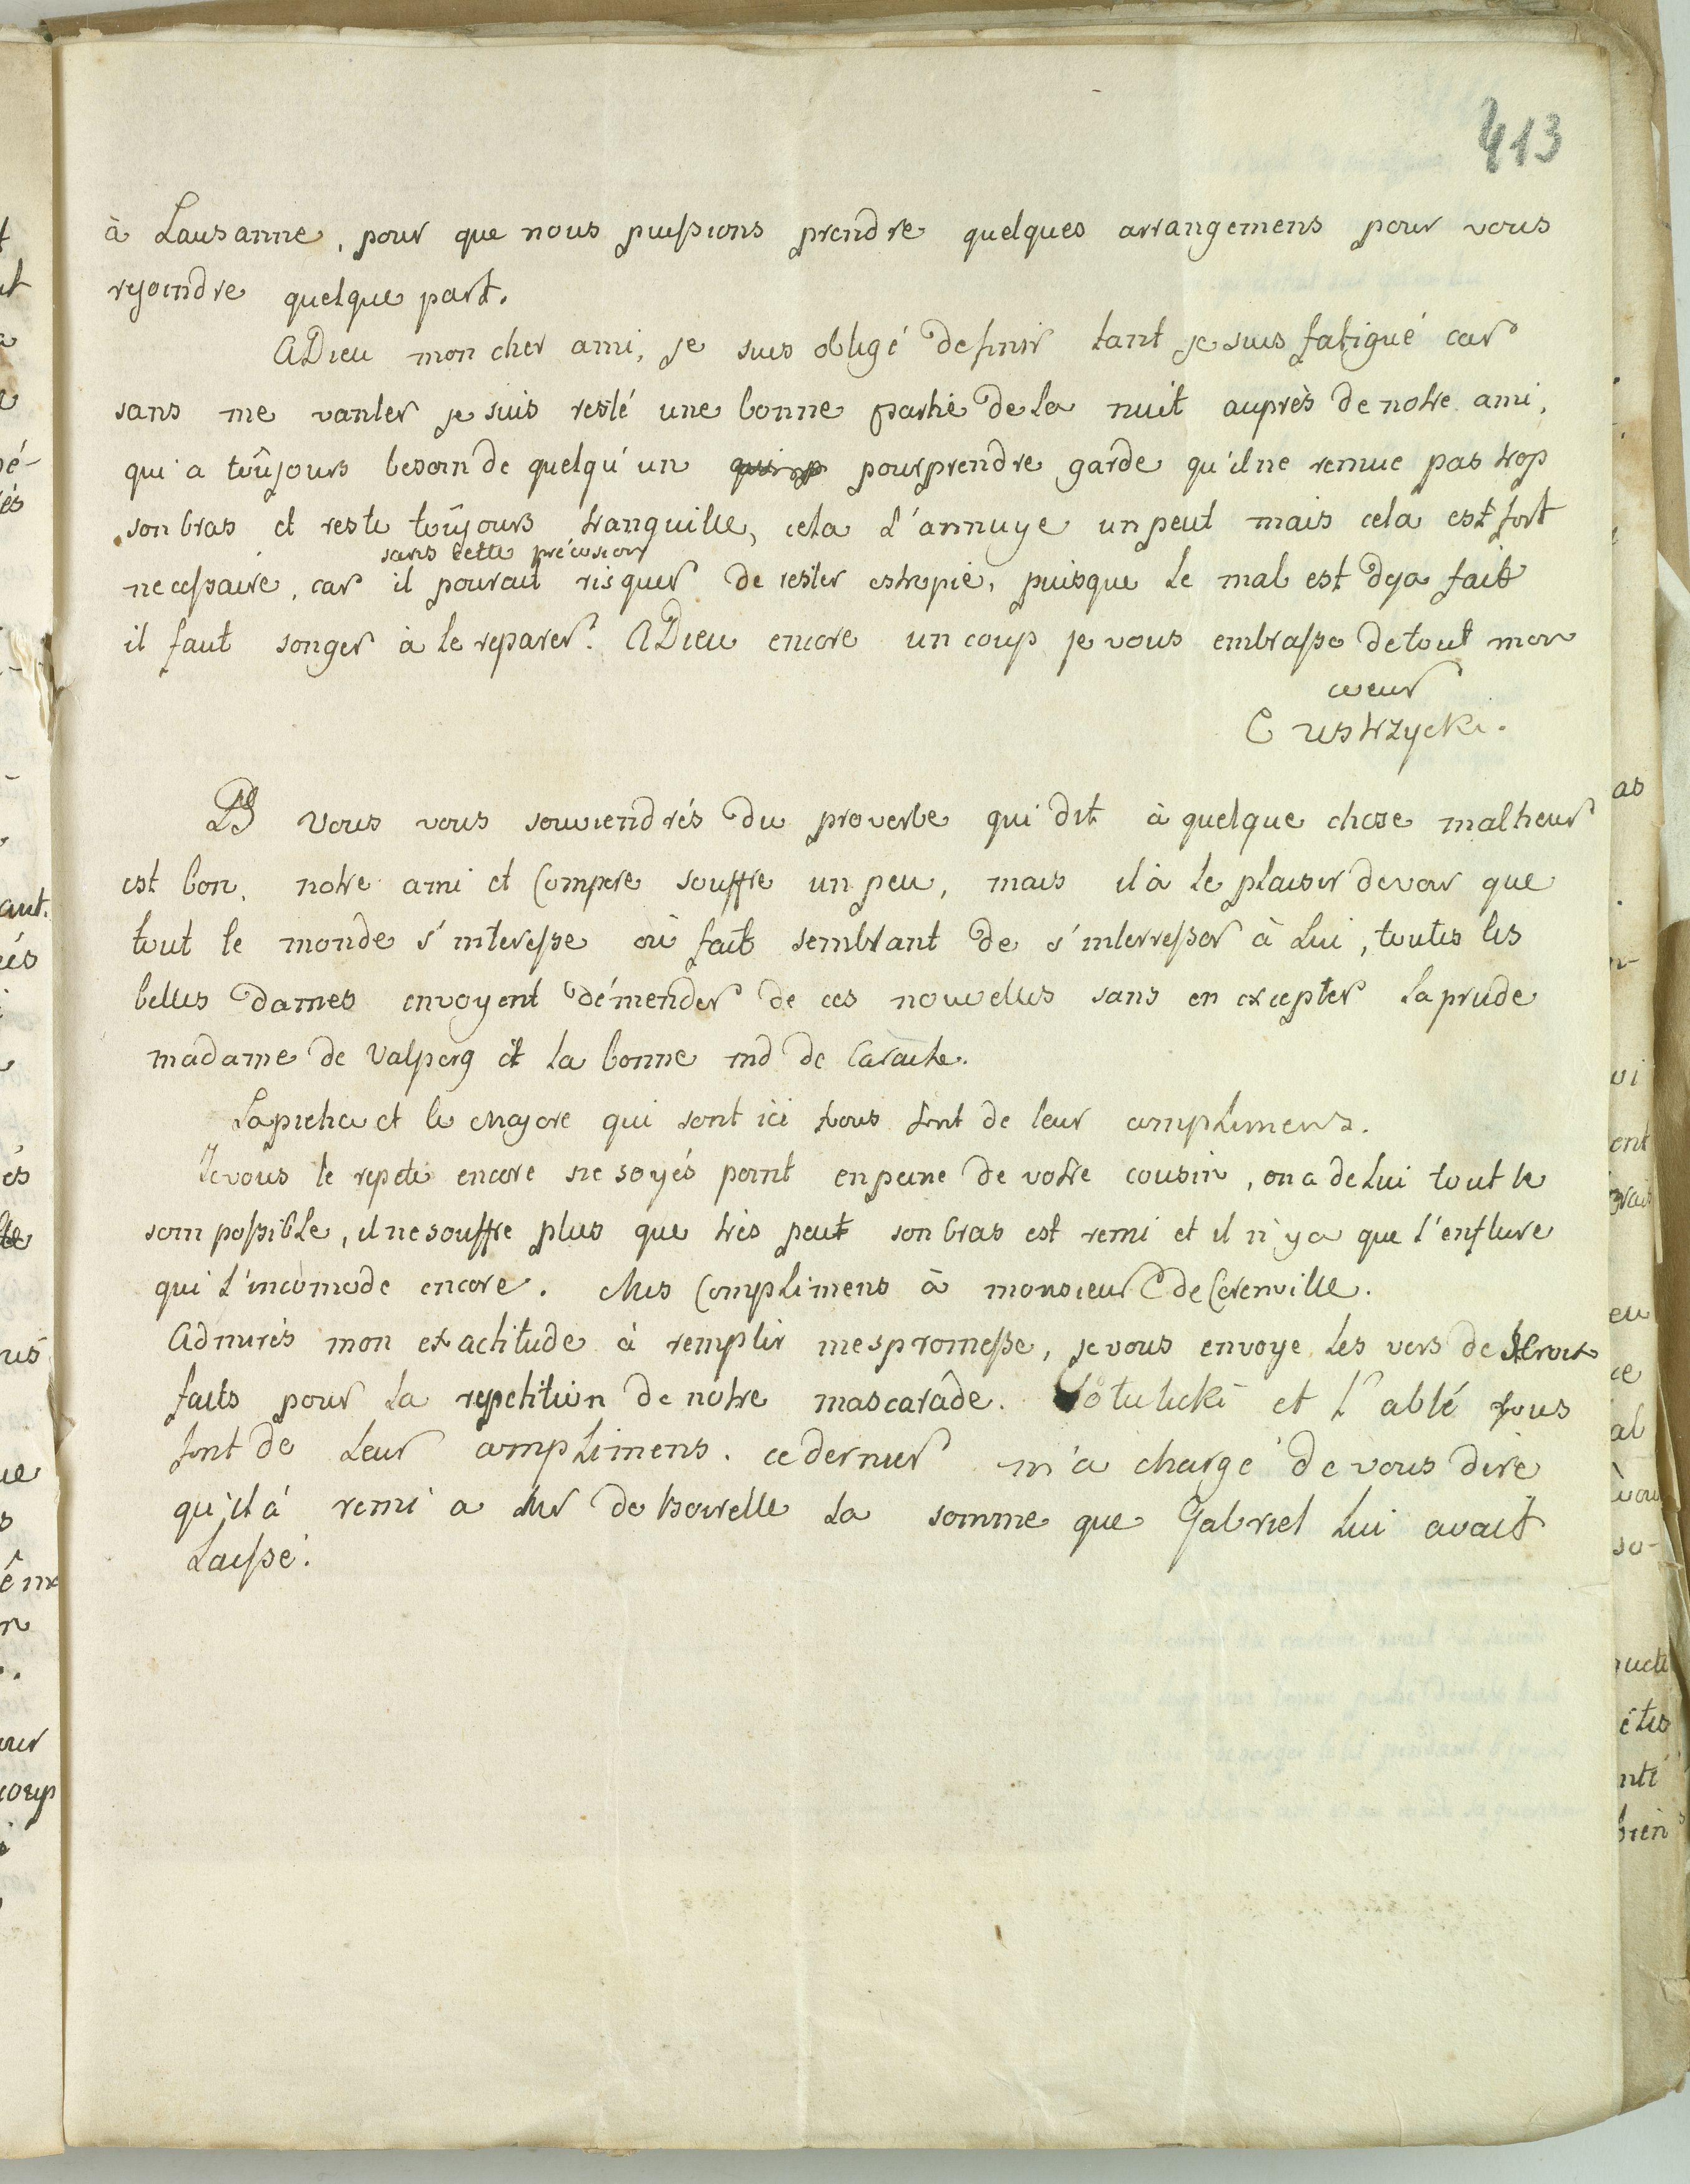 413
à Lausanne, pour que nous puissions prendre quelques arrangemens pour vous
rejoindre quelque part.
ADieu mon cher ami, je suis obligé de finir tant je suis fatigué car
sans me vanter je suis resté une bonne partie de la nuit auprès de notre ami,
qui a toûjours besoin de quelqu'un pour prendre garde qu'il ne remue pas trop
son bras et reste toûjours tranquille, cela l'annuye un peut mais cela est fort
sans cette précosion
necessaire, car il pourait risquer de rester estropié, puisque le mal est deja fait
il faut songer à le reparer. ADieu encore un coup je vous embrasse de tout mon
coeur
C Ustrzycki.
PS Vous vous souviendrés du proverbe qui dit à quelque chose malheur
est bon. notre ami et Compere souffre un peu, mais il à le plaisir de voir que
tout le monde s'interesse où fait semblant de s'interresser à Lui, toutes les
belles Dames envoyent démender de ces nouvelles sans en excepter la prude
madame de Valperg et la bonne md de
et le Majore qui sont ici vous font de leur complimens.
Je vous le repete encore ne soyés point en peine de votre cousin, on a de Lui tout le
soin possible, il ne souffre plus que très peut son bras est remi et il n'y a que l'enflure
qui l'incomode encore. Mes Complimens à monsieur de Cerenville.
Admirés mon exactitude à remplir mes promesse, je vous envoye les vers de
faits pour la repetition de notre mascarâde. et l'abbé vous
font de Leur complimens. ce dernier m'a chargé de vous dire
qu'il à remi a Mr de la somme que Gabriel Lui avait
Laissé.